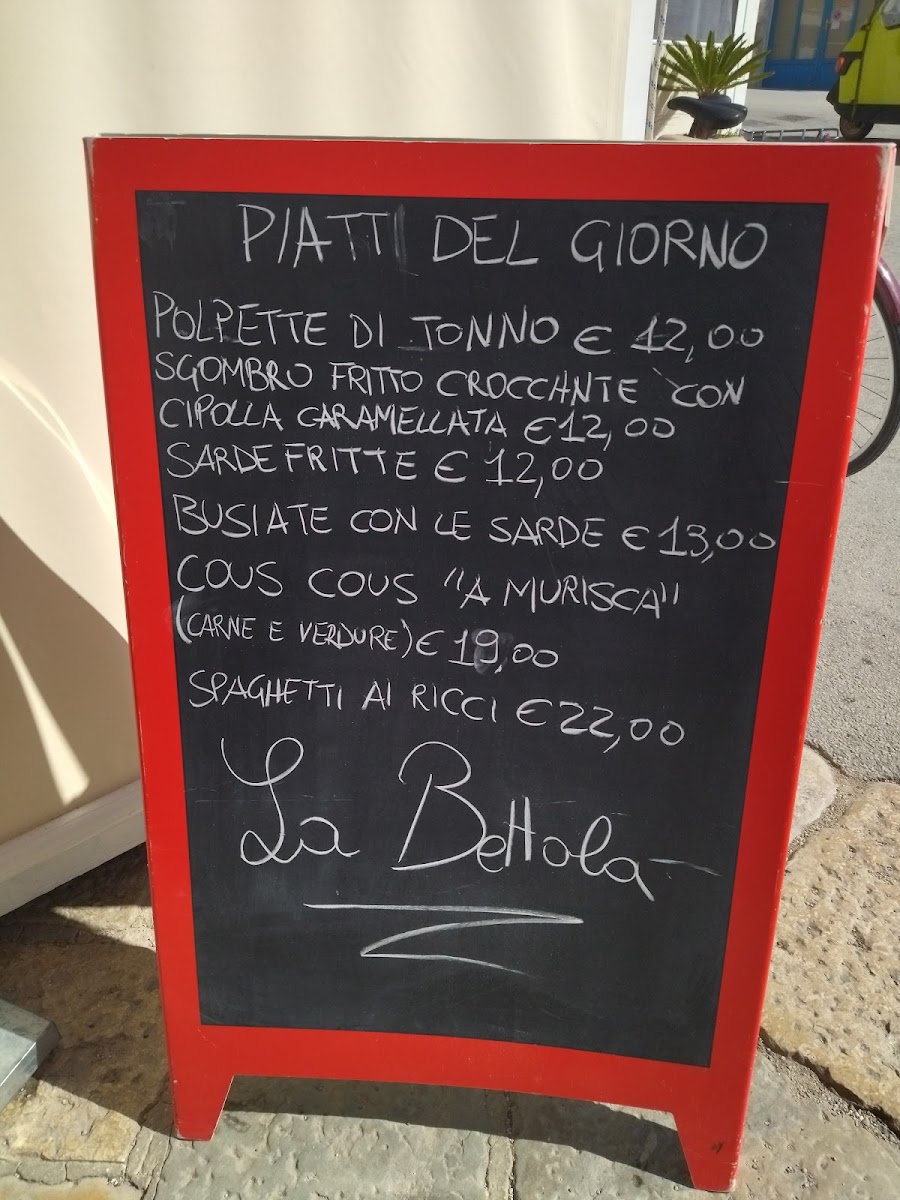 PIATTI DEL GIORNO
POLPETTE DI TONNO € 12,00
SGOMBRO FRITTO CROCCANTE CON
CIPOLLA CARAMELLATA € 12,00
SARDE FRITTE € 12,00
BUSIATE CON LE SARDE € 13,00
COUS COUS "A MURISCA"
(CARNE E VERDURE) € 19,00
SPAGHETTI AI RICCI € 22,00
La Bettola